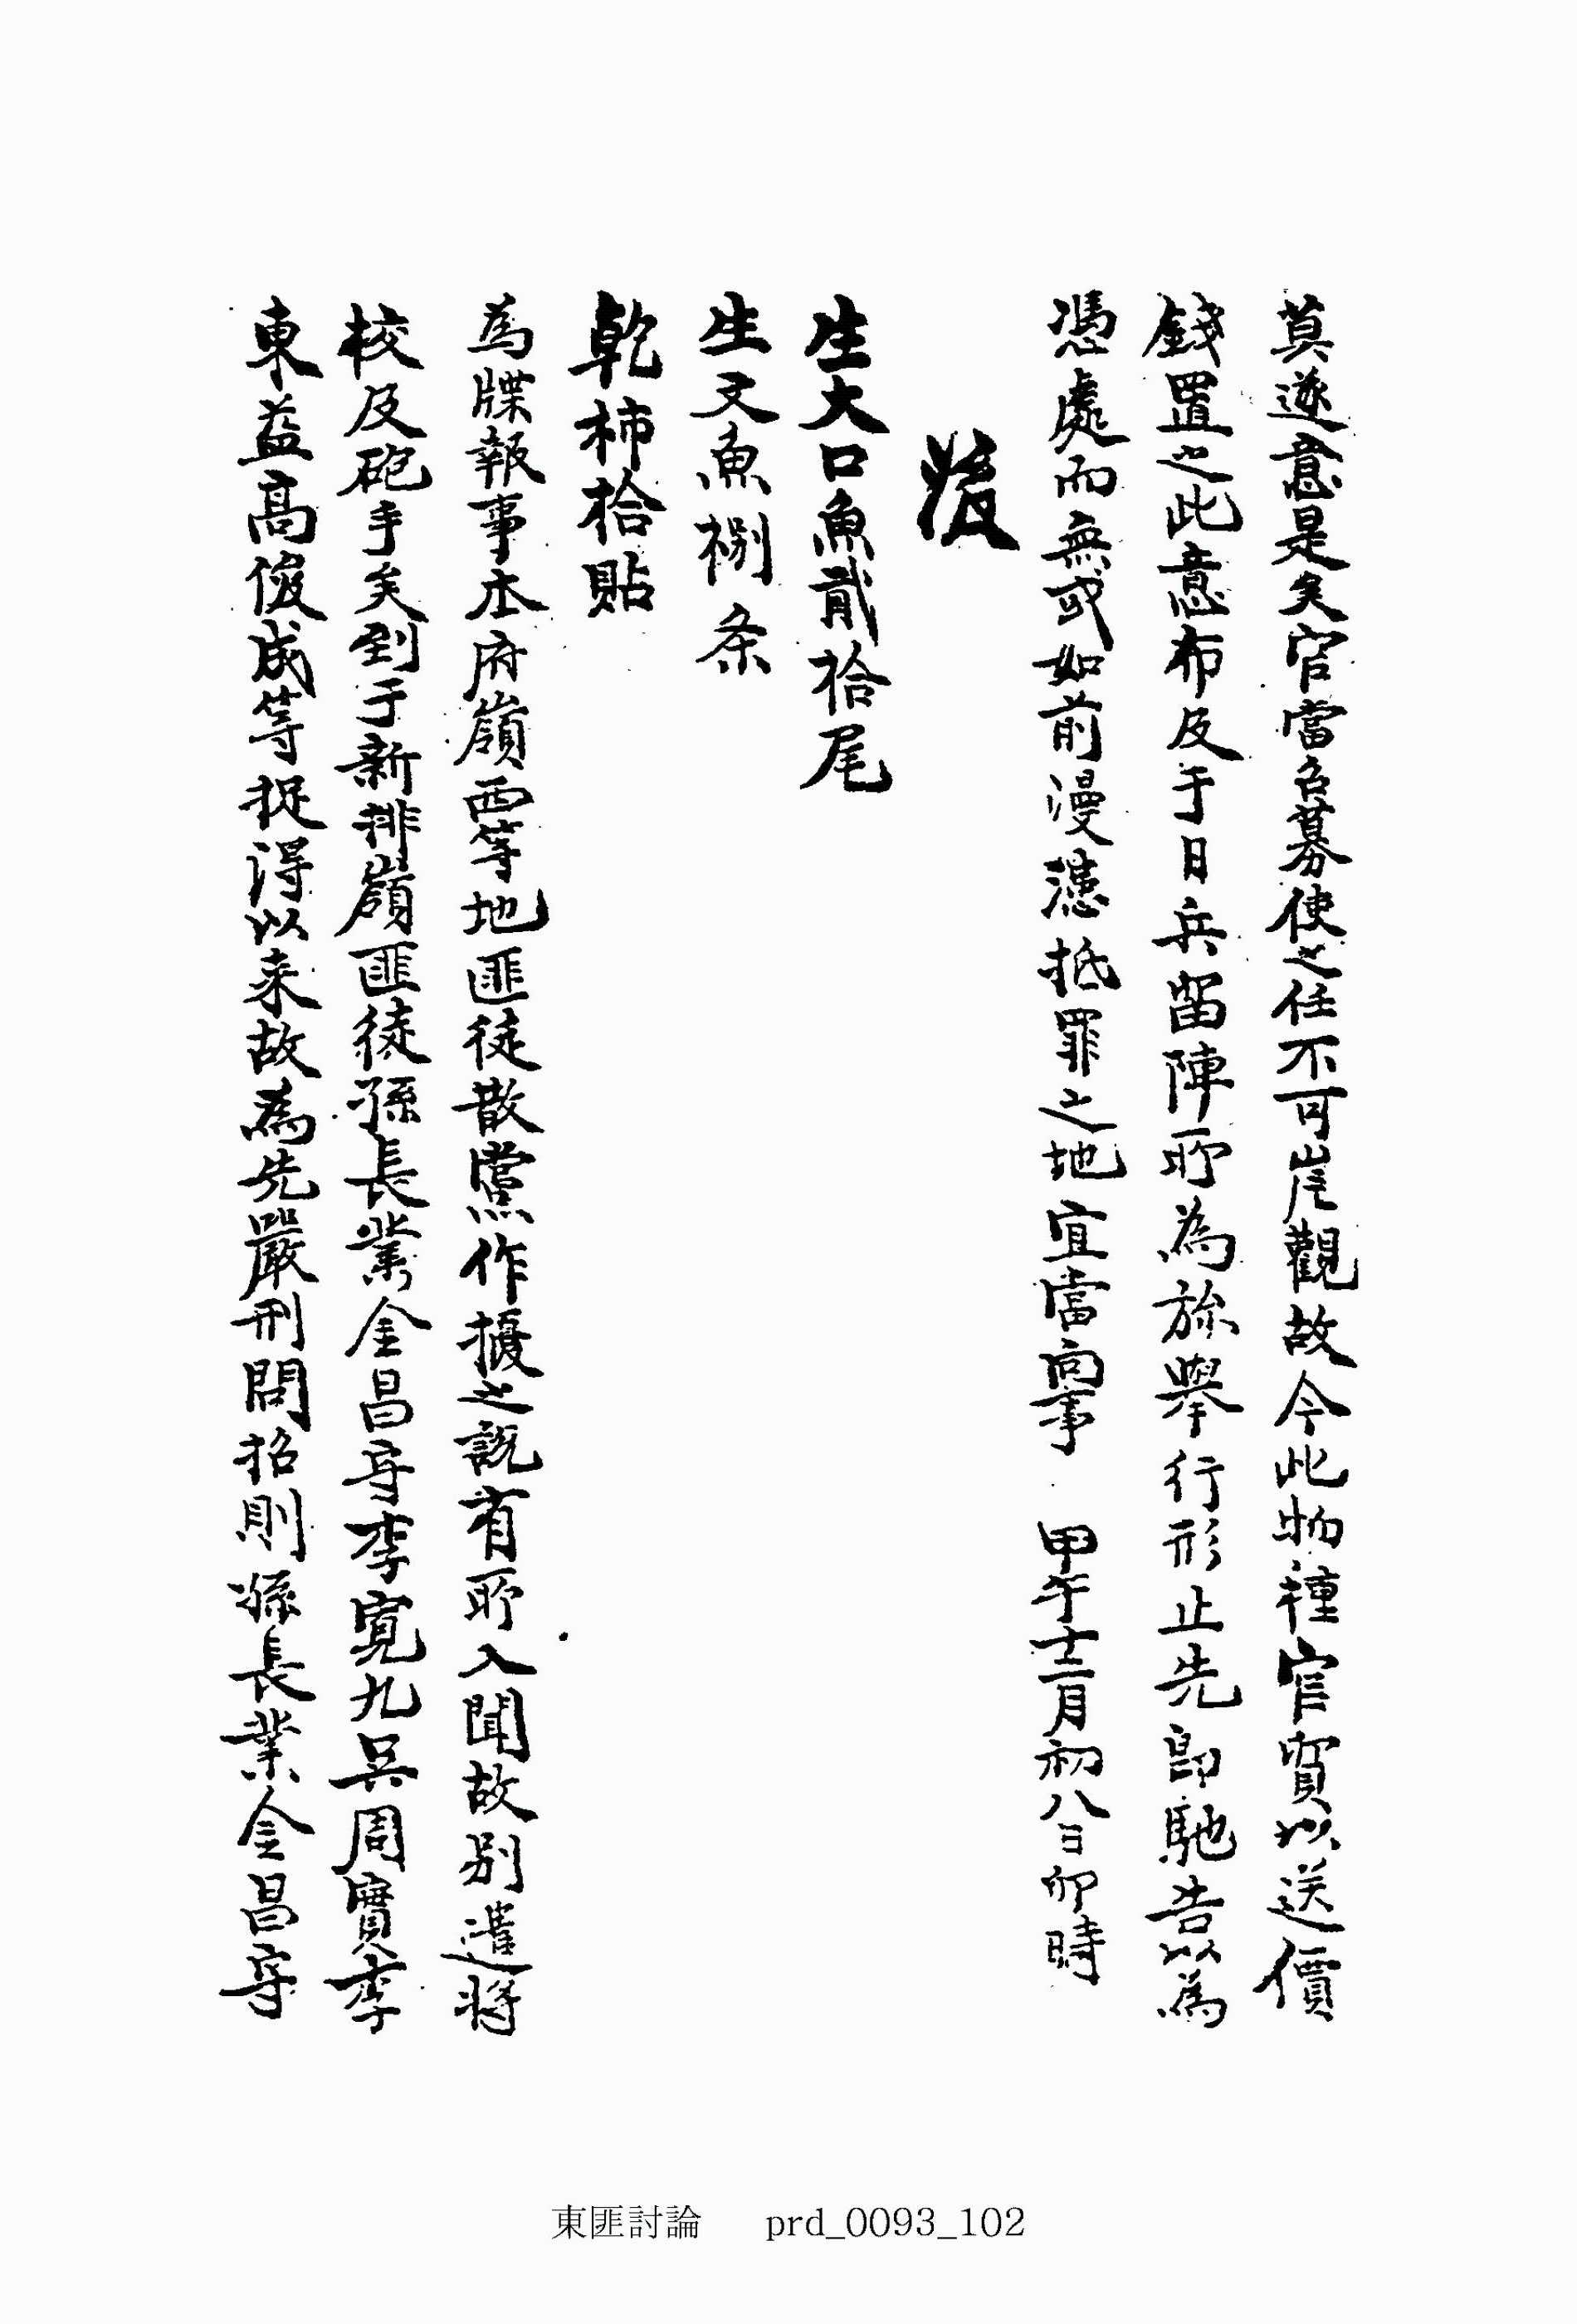 莫遂意是矣官當召募使之任不可岸觀故今此物種官貿以送價
錢置之此意布及于日兵留陣所為旀擧行形止先卽馳告以為
憑處而無或如前漫漶抵罪之地宜當向事 甲午十二月初八日卯時
後
生大口魚貳拾尾
生文魚捌条
乾柿拾貼
為牒報事本府嶺西等地匪徒散黨作擾之說有所入聞故別遣將
校及砲手矣到于新排嶺匪徒孫長業金昌守李寬九吳周實李
東益高俊成等捉得以来故為先嚴刑問招則孫長業金昌守
東匪討論 prd_0093_102